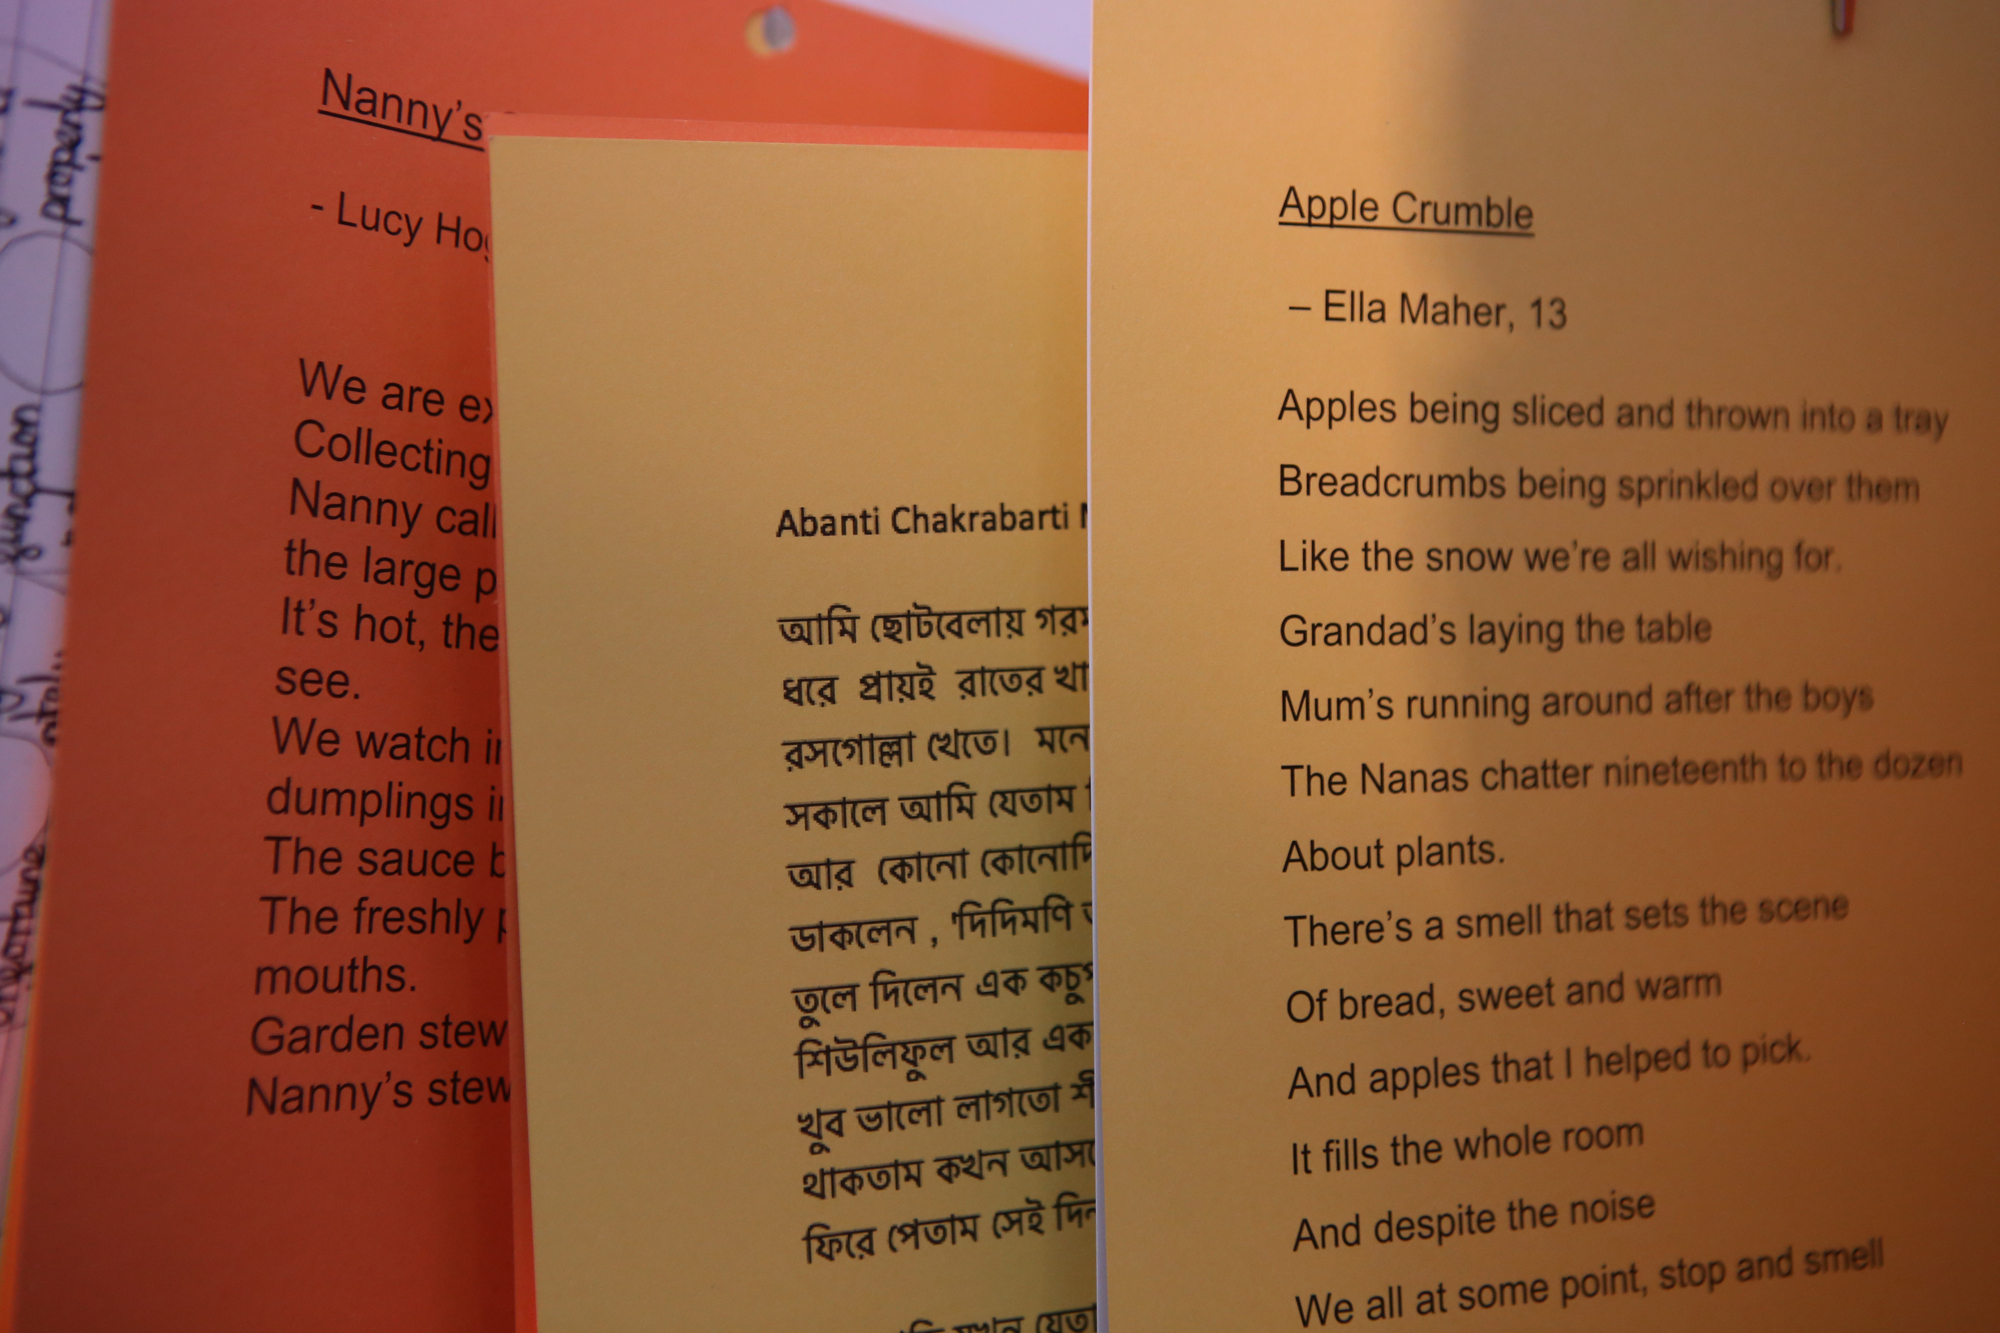 properly
function
Nanny's
- Lucy
We are
Collecting
Nanny
the large
It's hot, the
see.
We watch
dumplings
The sauce
The freshly
mouths.
Garden stew
Nanny's stew
Abanti Chakrabarti
আমি ছোটবেলায়
ধরে প্রায়ই রাতের
রসগোল্লা খেতে। মনে
সকালে আমি যেতাম
আর কোনো
ডাকলেন , 'দিদিমণি
তুলে দিলেন এক
শিউলিফুল আর এক
খুব ভালো লাগতো
থাকতাম কখন
ফিরে পেতাম সেই
Apple Crumble
– Ella Maher, 13
Apples being sliced and thrown into a tray
Breadcrumbs being sprinkled over them
Like the snow we're all wishing for.
Grandad's laying the table
Mum's running around after the boys
The Nanas chatter nineteenth to the dozen
About plants.
There's a smell that sets the scene
Of bread, sweet and warm
And apples that I helped to pick.
It fills the whole room
And despite the noise
We all at some point, stop and smell